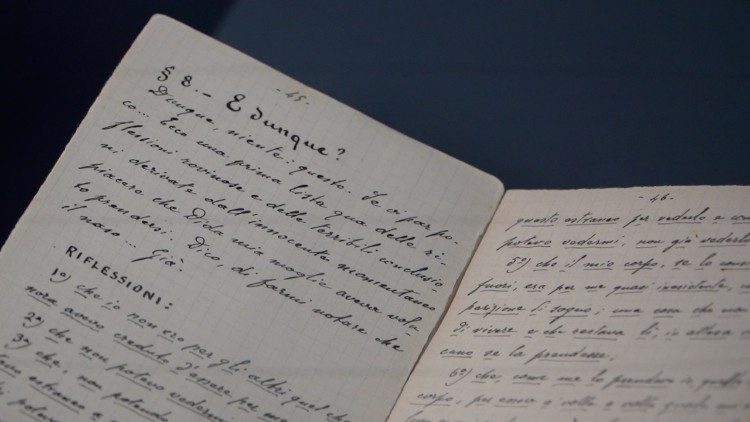 - 45 -
§ 8. – E dunque?
Dunque, niente: questo. Se vi par po-
co... Ecco una prima lista qua delle ri-
flessioni rovinose e delle terribili conclusio-
ni derivate dall'innocente momentaneo
piacere che Dida mia moglie aveva volu-
to prendersi. Dico, di farmi notare che
il naso... Già.
RIFLESSIONI:
1º) che io non ero per gli altri quel che
nora avevo creduto d'essere per me
2º) che non potevo vedermi
3º) che, non potendo
estraneo a
potevo
- 46 -
questo estraneo per vederlo e
potevo vedermi, non già vederlo
5º) che il mio corpo, se lo consi
fuori, era per me quasi inesistente, un
parizione di sogno; una cosa che non
di vivere e che restava lì, in attesa
cuno se la prendesse.
6º) che, come me lo prendevo io, questo
corpo, per essere a volta a volta quale